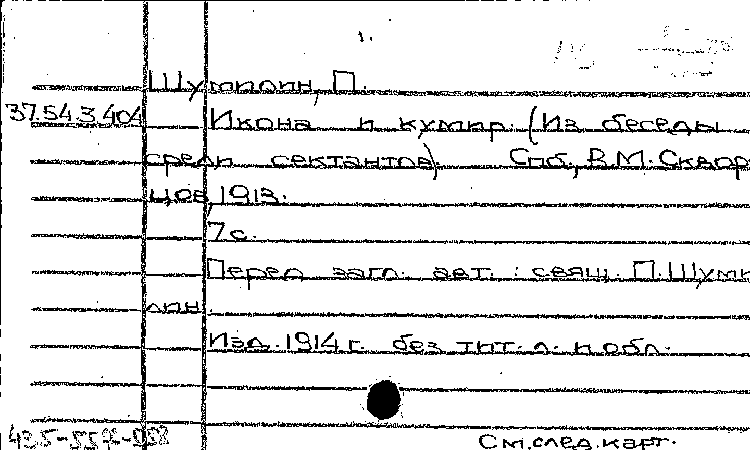 1.
Шумилин, П.
37.54.3.404 Икона и кумир. (Из беседы
среди сектантов). Спб., В.М. Сквор-
цов, 1913.
7 с.
Перед загл. авт.: свящ. П. Шуми-
лин.
Изд. 1914 г. без тит. л. и обл.
См. след. карт.